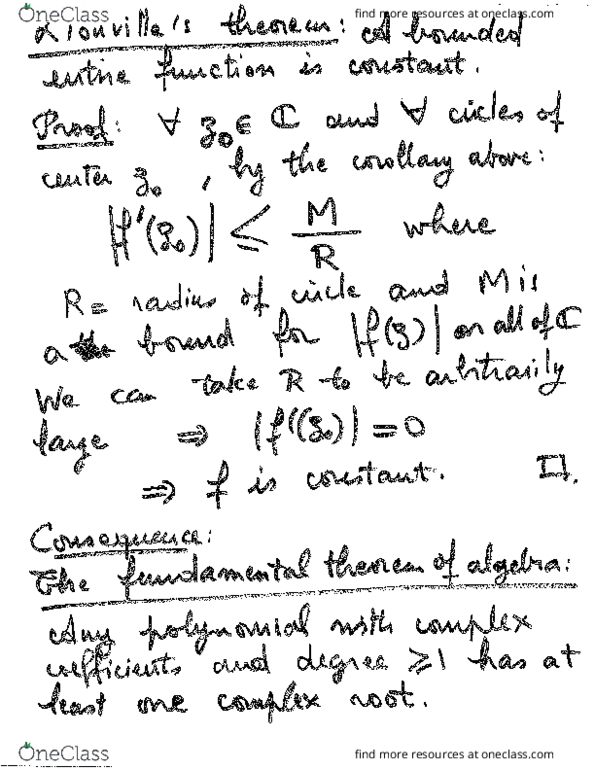 OneClass find more resources at oneclass.com
Liouville's theorem: A bounded
entire function is constant.
Proof: ∀ z₀ ∈ ℂ and ∀ circles of
center z₀, by the corollary above:
|f'(z₀)| ≤ M/R where
R = radius of circle and M is
a bound for |f(z)| on all of ℂ
We can take R to be arbitrarily
large ⇒ |f'(z₀)| = 0
⇒ f is constant. □.
Consequence:
The fundamental theorem of algebra:
Any polynomial with complex
coefficients and degree ≥1 has at
least one complex root.
OneClass find more resources at oneclass.com